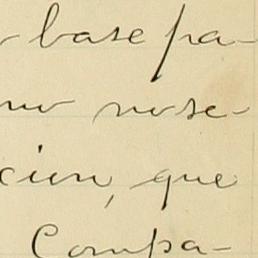 base pa-
mo nose-
cion, que
Compa-